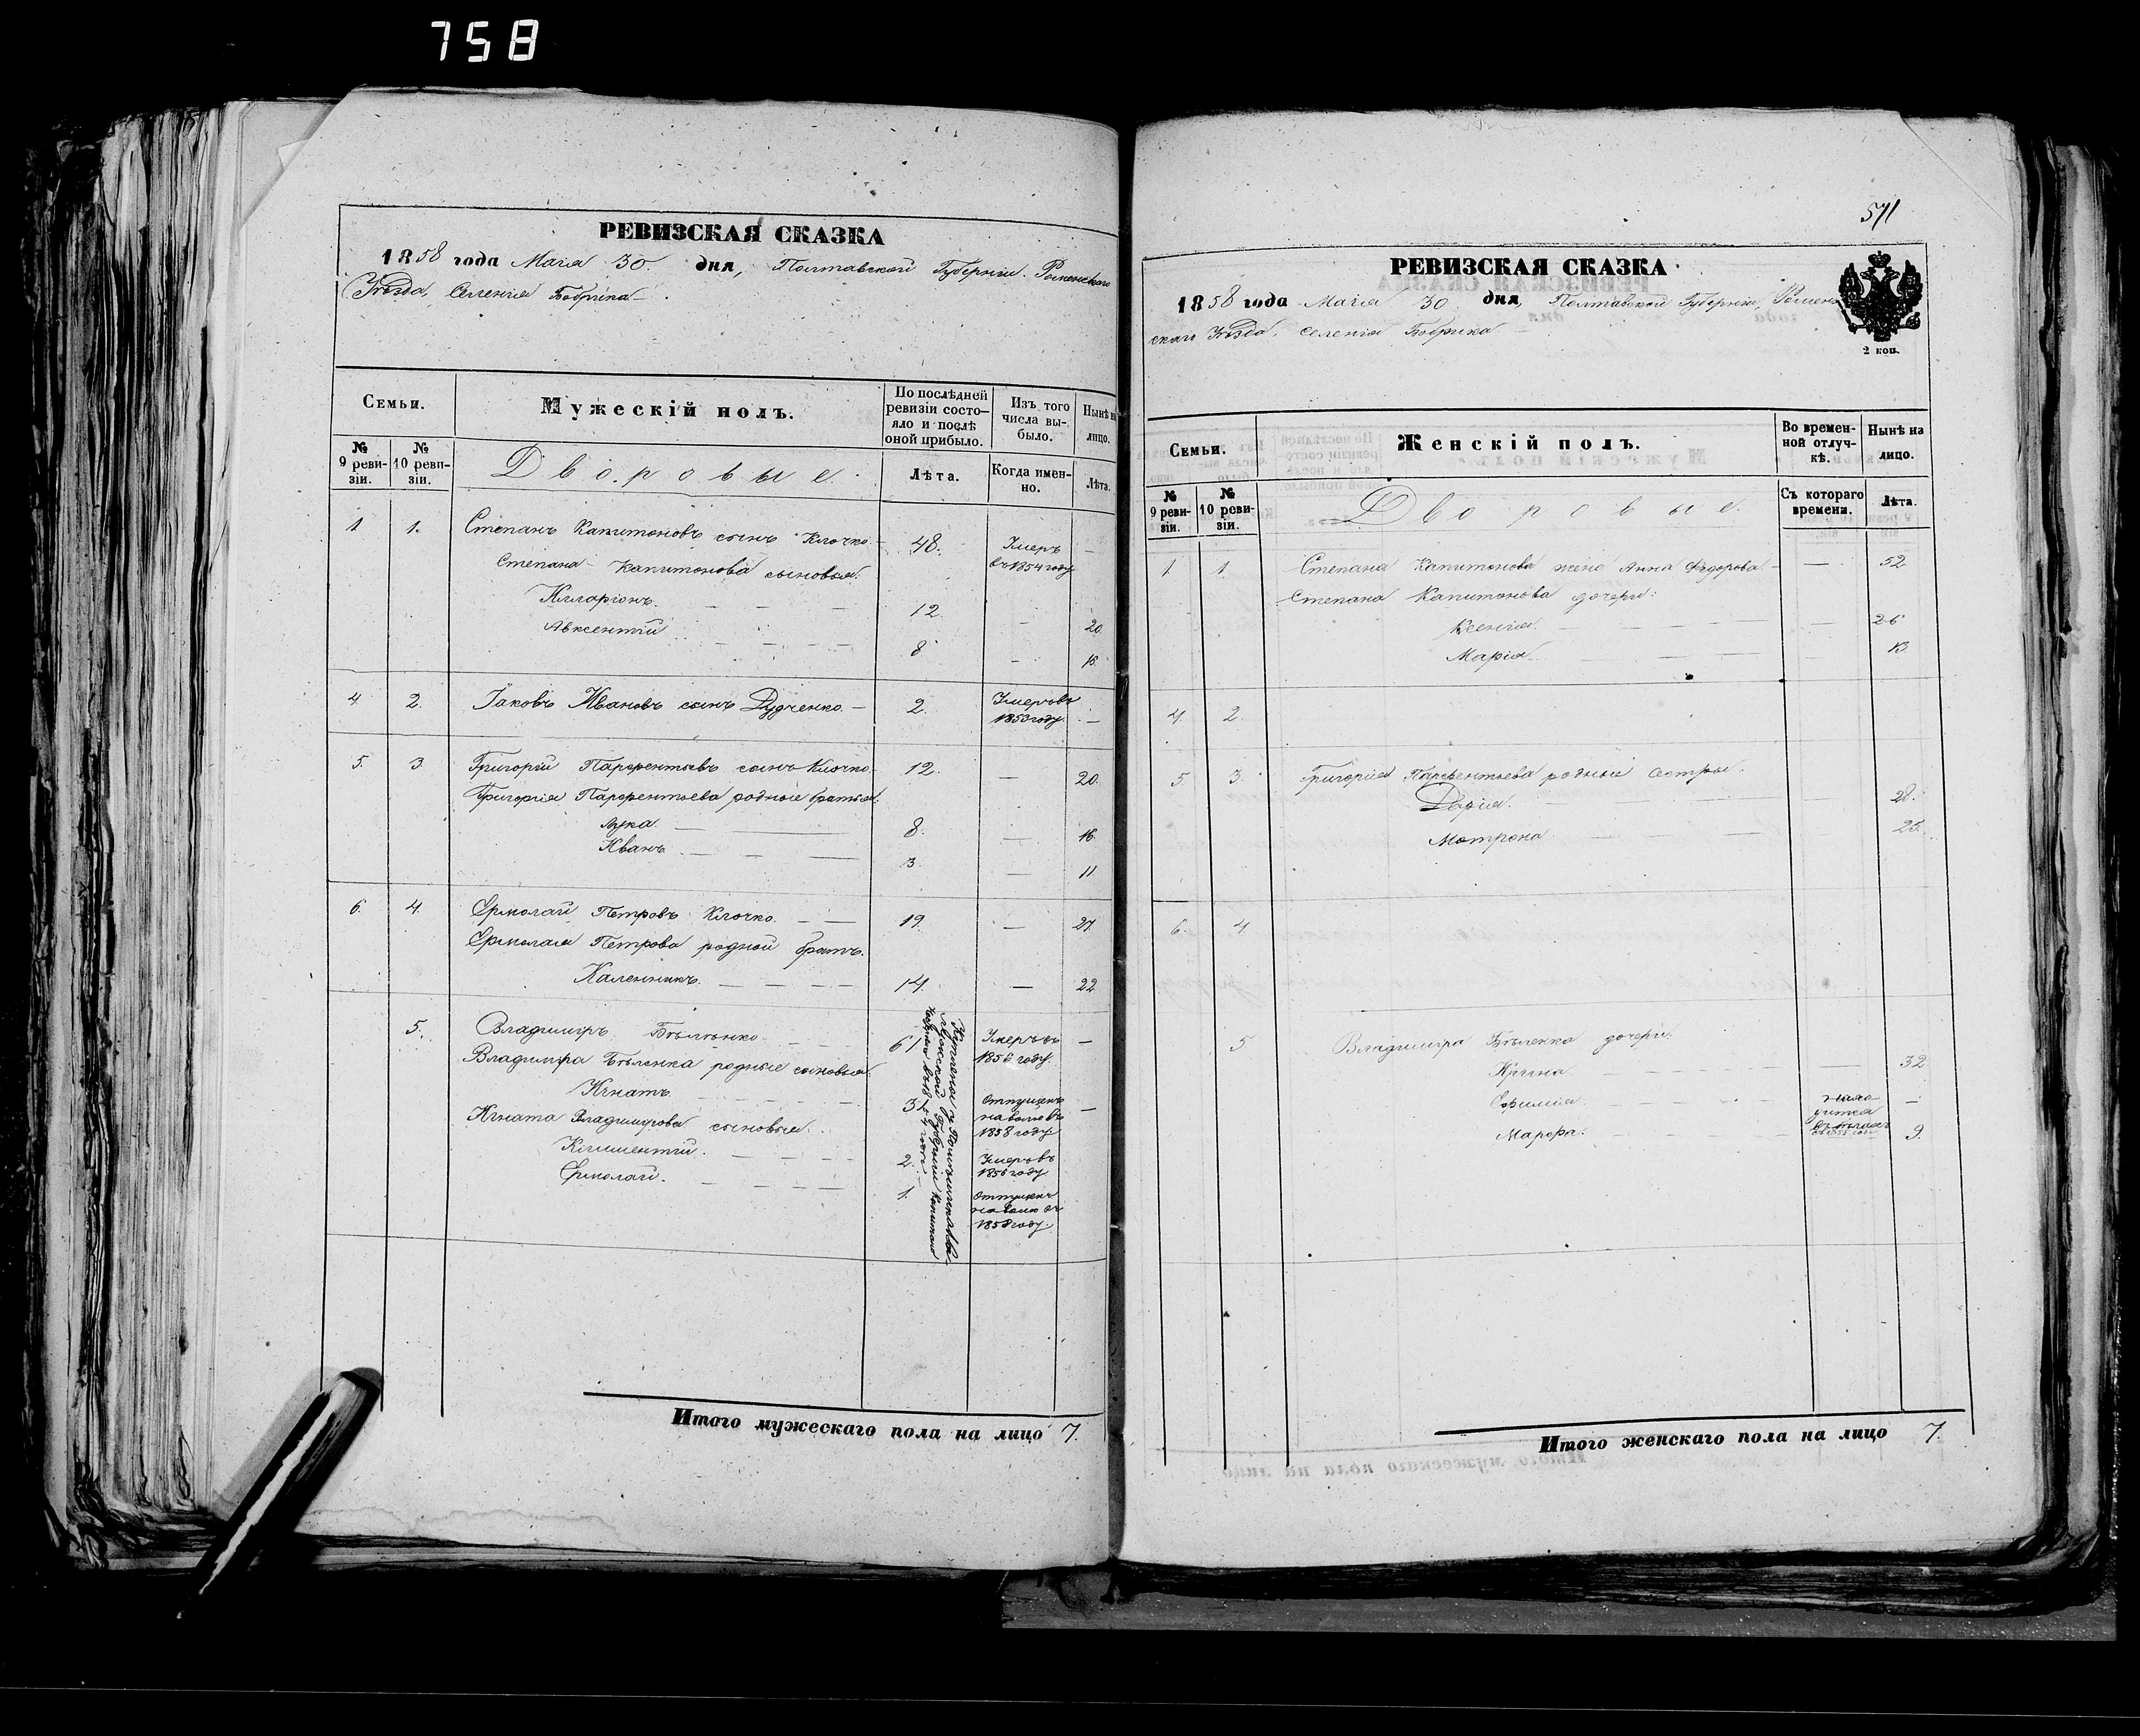 758
РЕВИЗСКАЯ СКАЗКА
1858 года Маія 30. дня, Полтавской Губерніи. Роменскаго
Уѣзда, Селенія Бобрика
Семьи.
Мужескій полъ.
По послѣдней ревизіи состо- яло и послѣ оной прибыло.
Изъ того числа вы- было.
Нынѣ на лицо.
№ 9 реви- зіи.
№ 10 реви- зіи.
Дворовые.
Лѣта.
Когда имен- но.
Лѣта.
1 1. Степанъ Капитоновъ сынъ Клочко. 48. Умеръ въ 1854 году —
Степана Капитонова сыновья:
Илларіонъ. 12. — 20.
Авксентій 8 —
4 2. Іаковъ Ивановъ сынъ Дудченко. — 2. Умеръ въ 1853 году. —
5. 3. Григорій Парфентьевъ сынъ Клочко. 12. — 20.
Григорія Парфентьева родные братья:
Лука. 8. — 16.
Иванъ 3. — 11.
6. 4. Ермолай Петровъ Клочко. 19. — 27.
Ермолая Петрова родной братъ.
Каленникъ. 14. — 22.
5. Владиміръ Бѣленко. 61 Умеръ въ 1856 году. —
Владиміра Бѣленка родные сыновья:
Игнатъ. Отпущенъ на волю въ 1858 году. —
Игната Владимірова сыновья:
Климентій. 2. Умеръ въ 1856 году.
Ермолай. 1. Отпущенъ на волю въ 1858 году.
Итого мужескаго пола на лицо 7.
571
РЕВИЗСКАЯ СКАЗКА
1858 года Маія 30 дня, Полтавской Губерніи, Ромен-
скаго Уѣзда, селенія Бобрика —
2 коп.
Семьи.
Женскій полъ.
Во времен- ной отлуч- кѣ.
Нынѣ на лицо.
№ 9 реви- зіи.
№ 10 реви- зіи.
Дворовые.
Съ котораго времени.
Лѣта.
1. 1. Степана Капитонова жена Анна Федорова. — 52
Степана Капитонова дочери:
Ксенія. — 26
Марія — 13
4 2
5 3. Григорія Парфентьева родные сестры.
Дарія. 28.
Мотрона 25.
6. 4.
5 Владиміра Бѣленка дочери:
Ирина — 32
Ефимія —
Марфа. 9.
Итого женскаго пола на лицо 7.